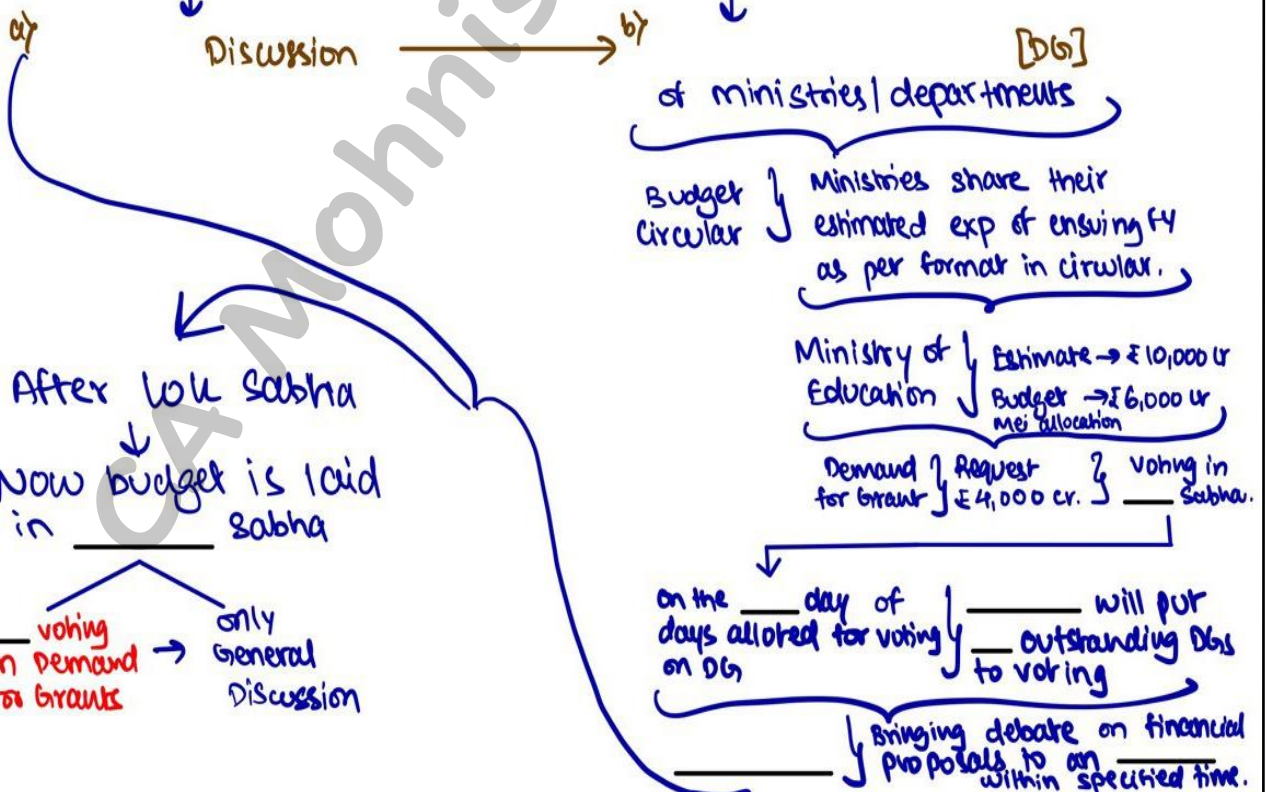 a)
Discussion
b)
[DG]
of ministries/departments
Budget
Circular
Ministries share their
estimated exp of ensuing FY
as per format in circular.
Ministry of
Education
Estimate → ₹10,000 cr
Budget → ₹6,000 cr
Mei allocation
Demand
for Grant
Request
₹4,000 cr.
Voting in
____ Sabha.
on the ____ day of
days alloted for voting
on DG
________ will put
___ outstanding DGs
to voting
________
Bringing debate on financial
proposals to an ______
within specified time.
After Lok Sabha
Now budget is laid
in ________ Sabha
__ voting
n Demand
or Grants
→ only
General
Discussion
CA Mohnis